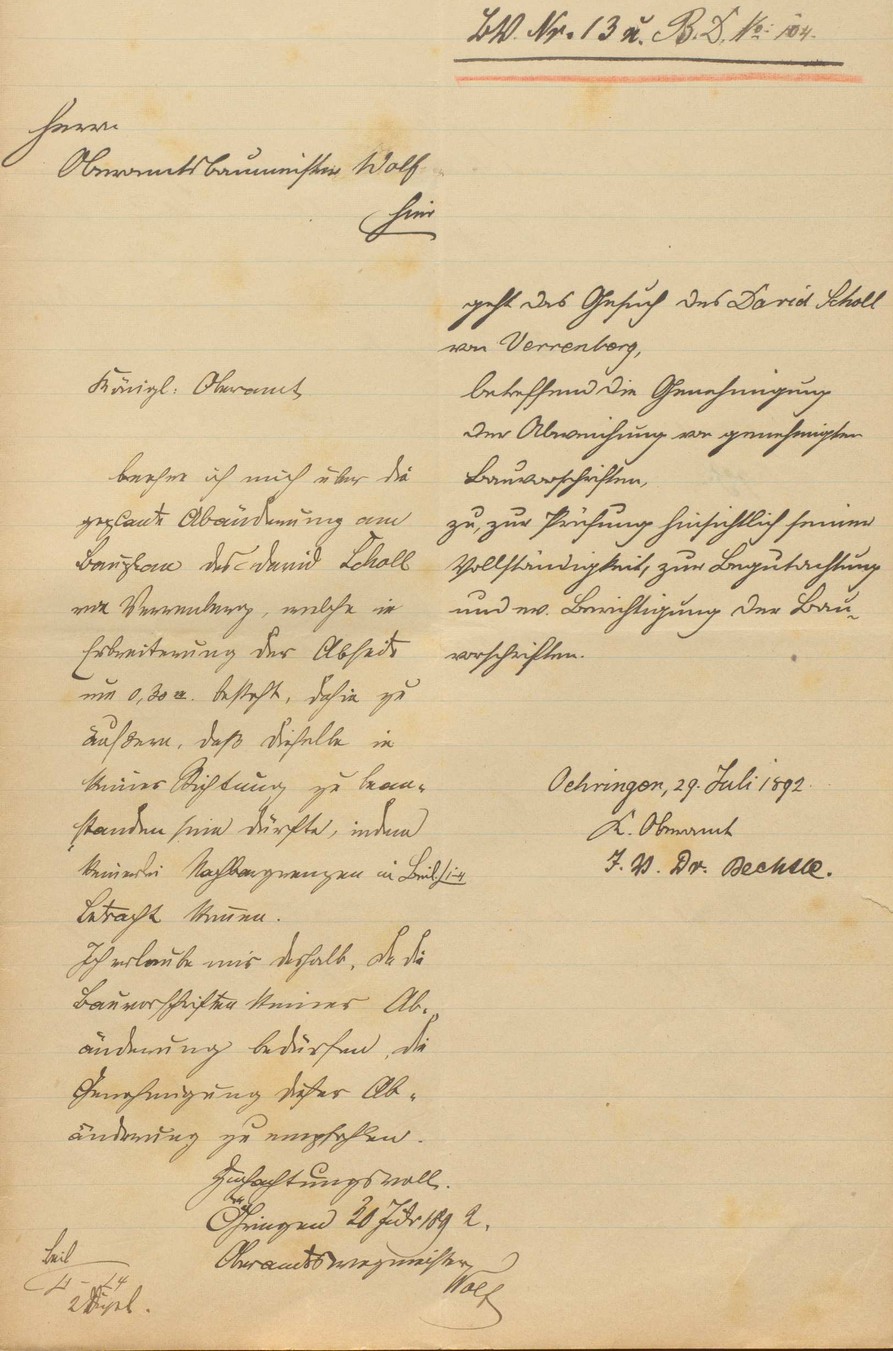 BW. Nr. 13 u. B. D. No: 104.
Herrn
Oberamtsbaumeister Wolf
hier
geht das Gesuch des David Scholl
von Verrenberg,
betreffend die Genehmigung
der Abweichung von genehmigten
Bauvorschriften,
zu, zur Prüfung hinsichtlich seiner
Vollständigkeit, zur Begutachtung
und ev. Berichtigung der Bau-
vorschriften.
Oehringen, 29. Juli 1892.
K. Oberamt
J. V. Dr. Bechtle.
Königl: Oberamt
beehre ich mich über die
geplante Abänderung am
Bauplan des David Scholl
von Verrenberg, welche in
Erbreiterung der Abseite
um 0,30 m. besteht, dahin zu
äußern, daß dieselbe in
keiner Richtung zu bean-
standen sein dürfte, indem
keinerlei Nachbargrenzen in Beil. 1-4
Betracht kommen.
Ich erlaube mir deshalb, da die
Bauvorschriften keiner Ab-
änderung bedürfen, die
Genehmigung dieser Ab-
änderung zu empfehlen.
Hochachtungsvoll.
Öhringen 30 Juli 1892.
Oberamtswegmeister
Wolf
Beil